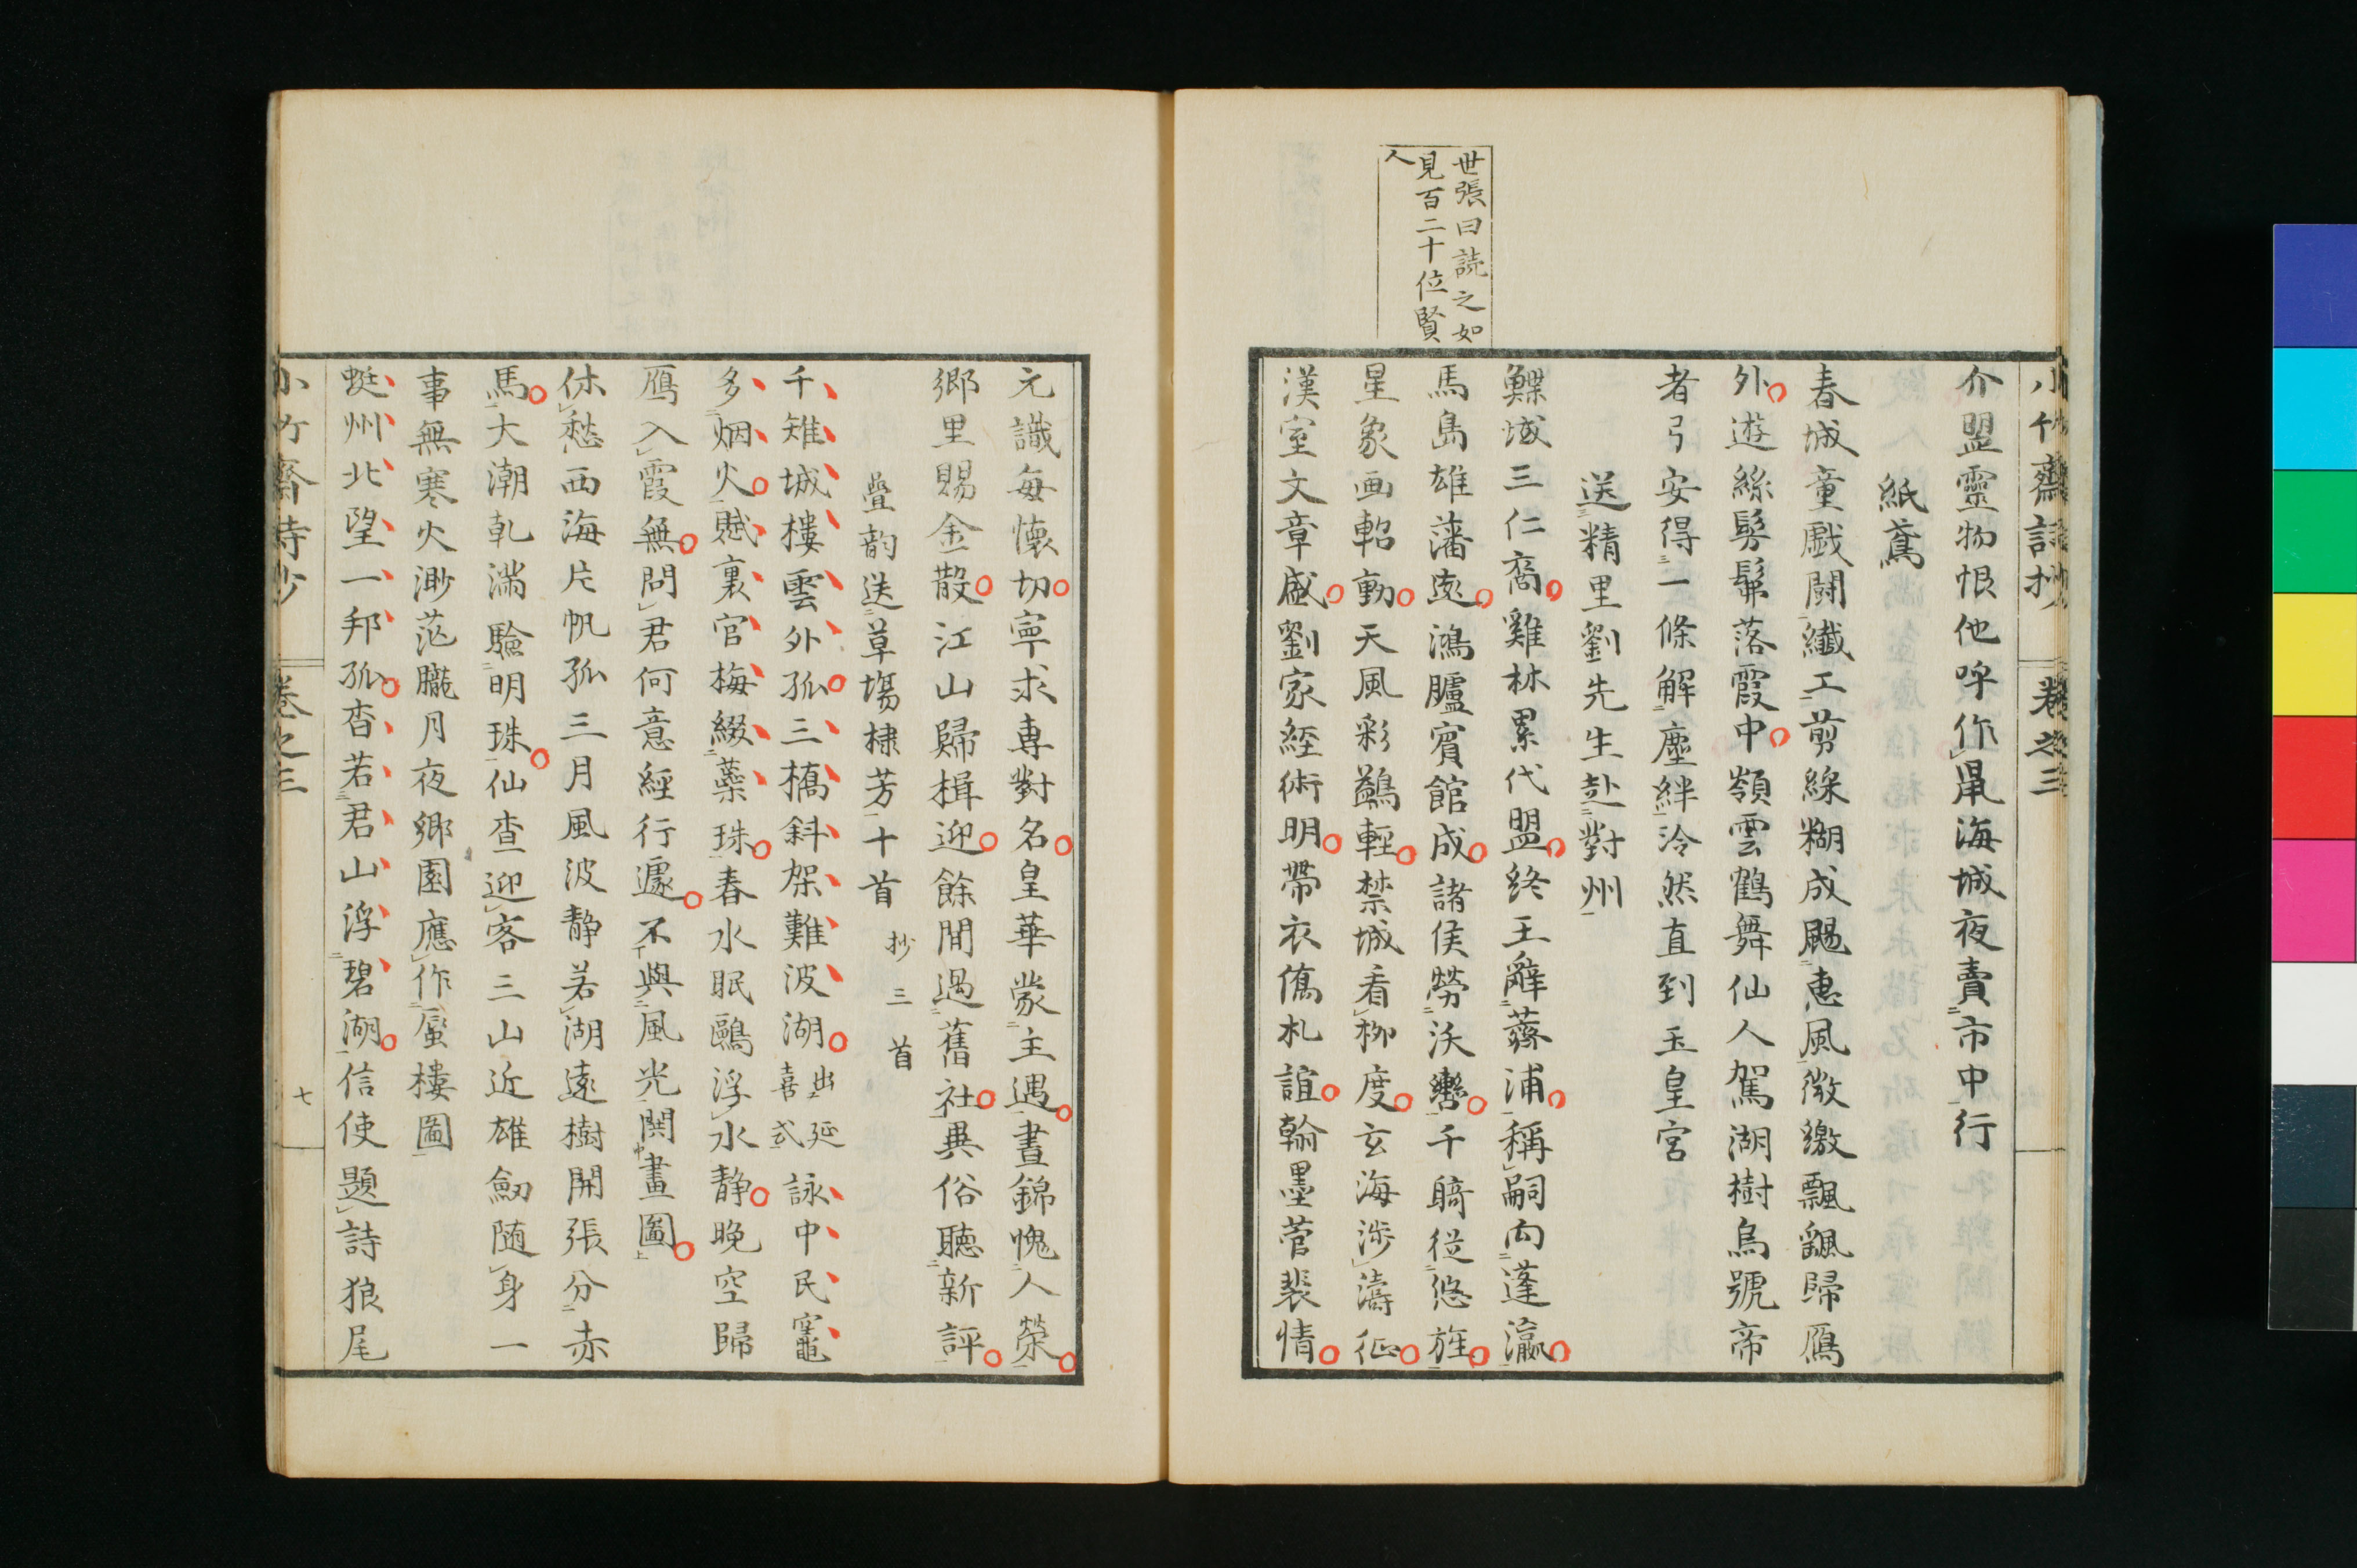 小竹齋詩抄 卷之三
介盟靈物恨他呼作黽海城夜賣市中行
紙鳶
春城童戯鬪纖工剪綵糊成颺惠風微繳飄颻歸鴈
外遊絲髣髴落霞中嶺雲鶴舞仙人駕湖樹烏號帝
者弓安得一條解塵絆泠然直到玉皇宮
送精里劉先生赴對州
鰈域三仁裔雞林累代盟終王辭薩浦稱嗣向蓬瀛
馬島雄藩遠鴻臚賓館成諸侯勞沃轡千騎從悠旌
星象画軺動天風彩鷁輕禁城看柳度玄海渉濤征
漢室文章盛劉家經術明帶衣僑札誼翰墨菅裴情
世張曰読之如
見百二十位賢
人
元識毎懷切寧求専對名皇華蒙主遇晝錦愧人榮
郷里賜金散江山歸楫迎餘間過舊社異俗聴新評
疊韵送草塲棣芳十首 抄三首
千雉城樓雲外孤三橋斜架難波湖出延喜式詠中民竈
多烟火賦裏官梅綴蘂珠春水眠鷗浮水静晩空歸
鴈入霞無問君何意經行遽不與風光閲畫圖
休愁西海片帆孤三月風波静若湖遠樹開張分赤
馬大潮乹満驗明珠仙查迎客三山近雄劔随身一
事無寒火渺茫朧月夜郷園應作蜃樓圖
蜓州北望一邦孤杳若君山浮碧湖信使題詩狼尾
小竹齋詩抄 卷之三 七